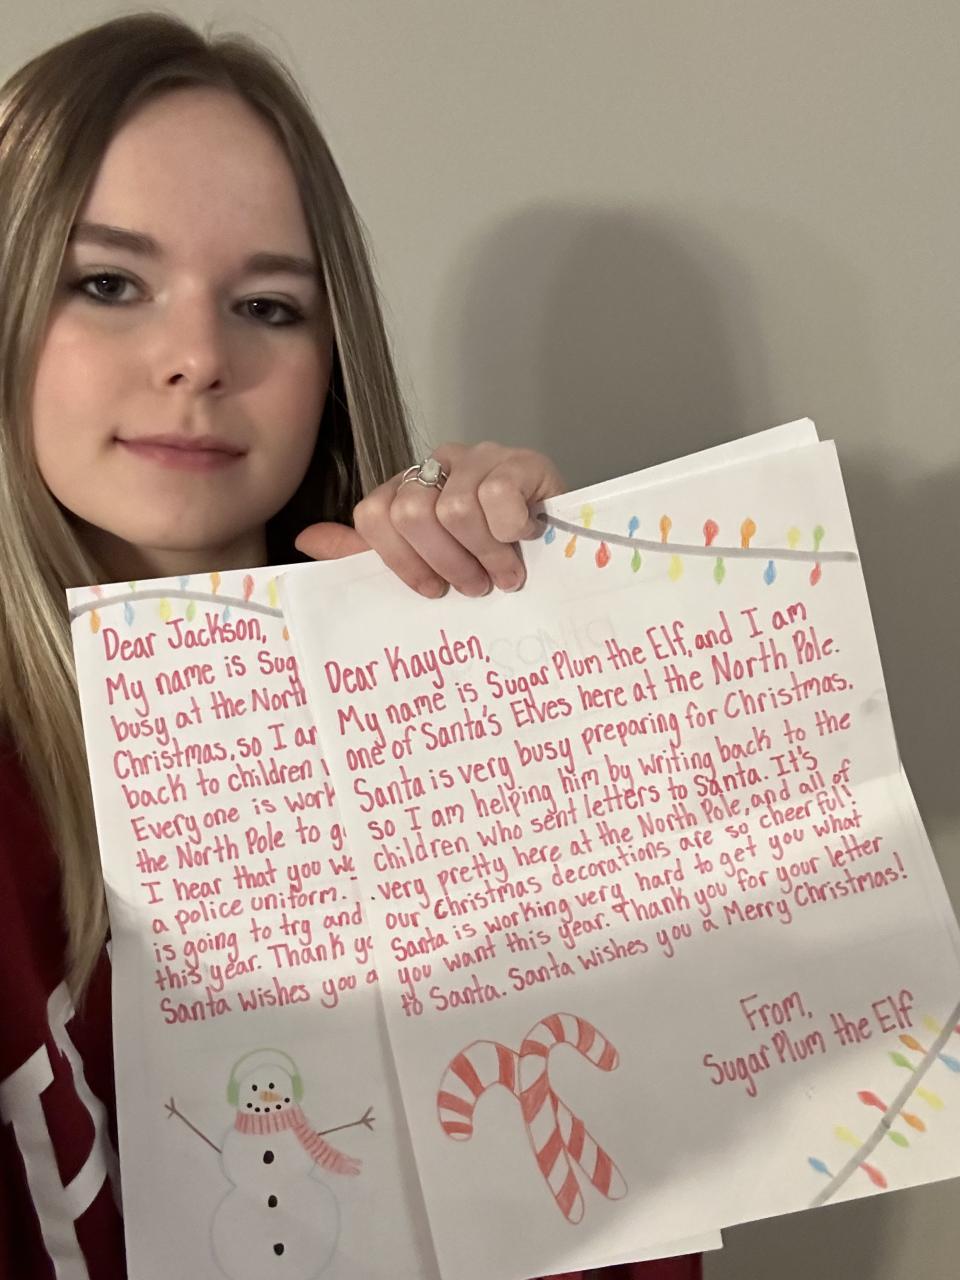 Dear Jackson,
My name is Sug
busy at the North
Christmas, so I am
back to children
Everyone is work
the North Pole to g
I hear that you
a police uniform.
is going to try and
this year. Thank yo
Santa wishes you a
Dear Kayden,
My name is Sugar Plum the Elf, and I am
one of Santa's Elves here at the North Pole.
Santa is very busy preparing for Christmas,
so I am helping him by writing back to the
children who sent letters to Santa. It's
very pretty here at the North Pole, and all of
our Christmas decorations are so cheerful!
Santa is working very hard to get you what
you want this year. Thank you for your letter
to Santa. Santa wishes you a Merry Christmas!
From,
Sugar Plum the Elf